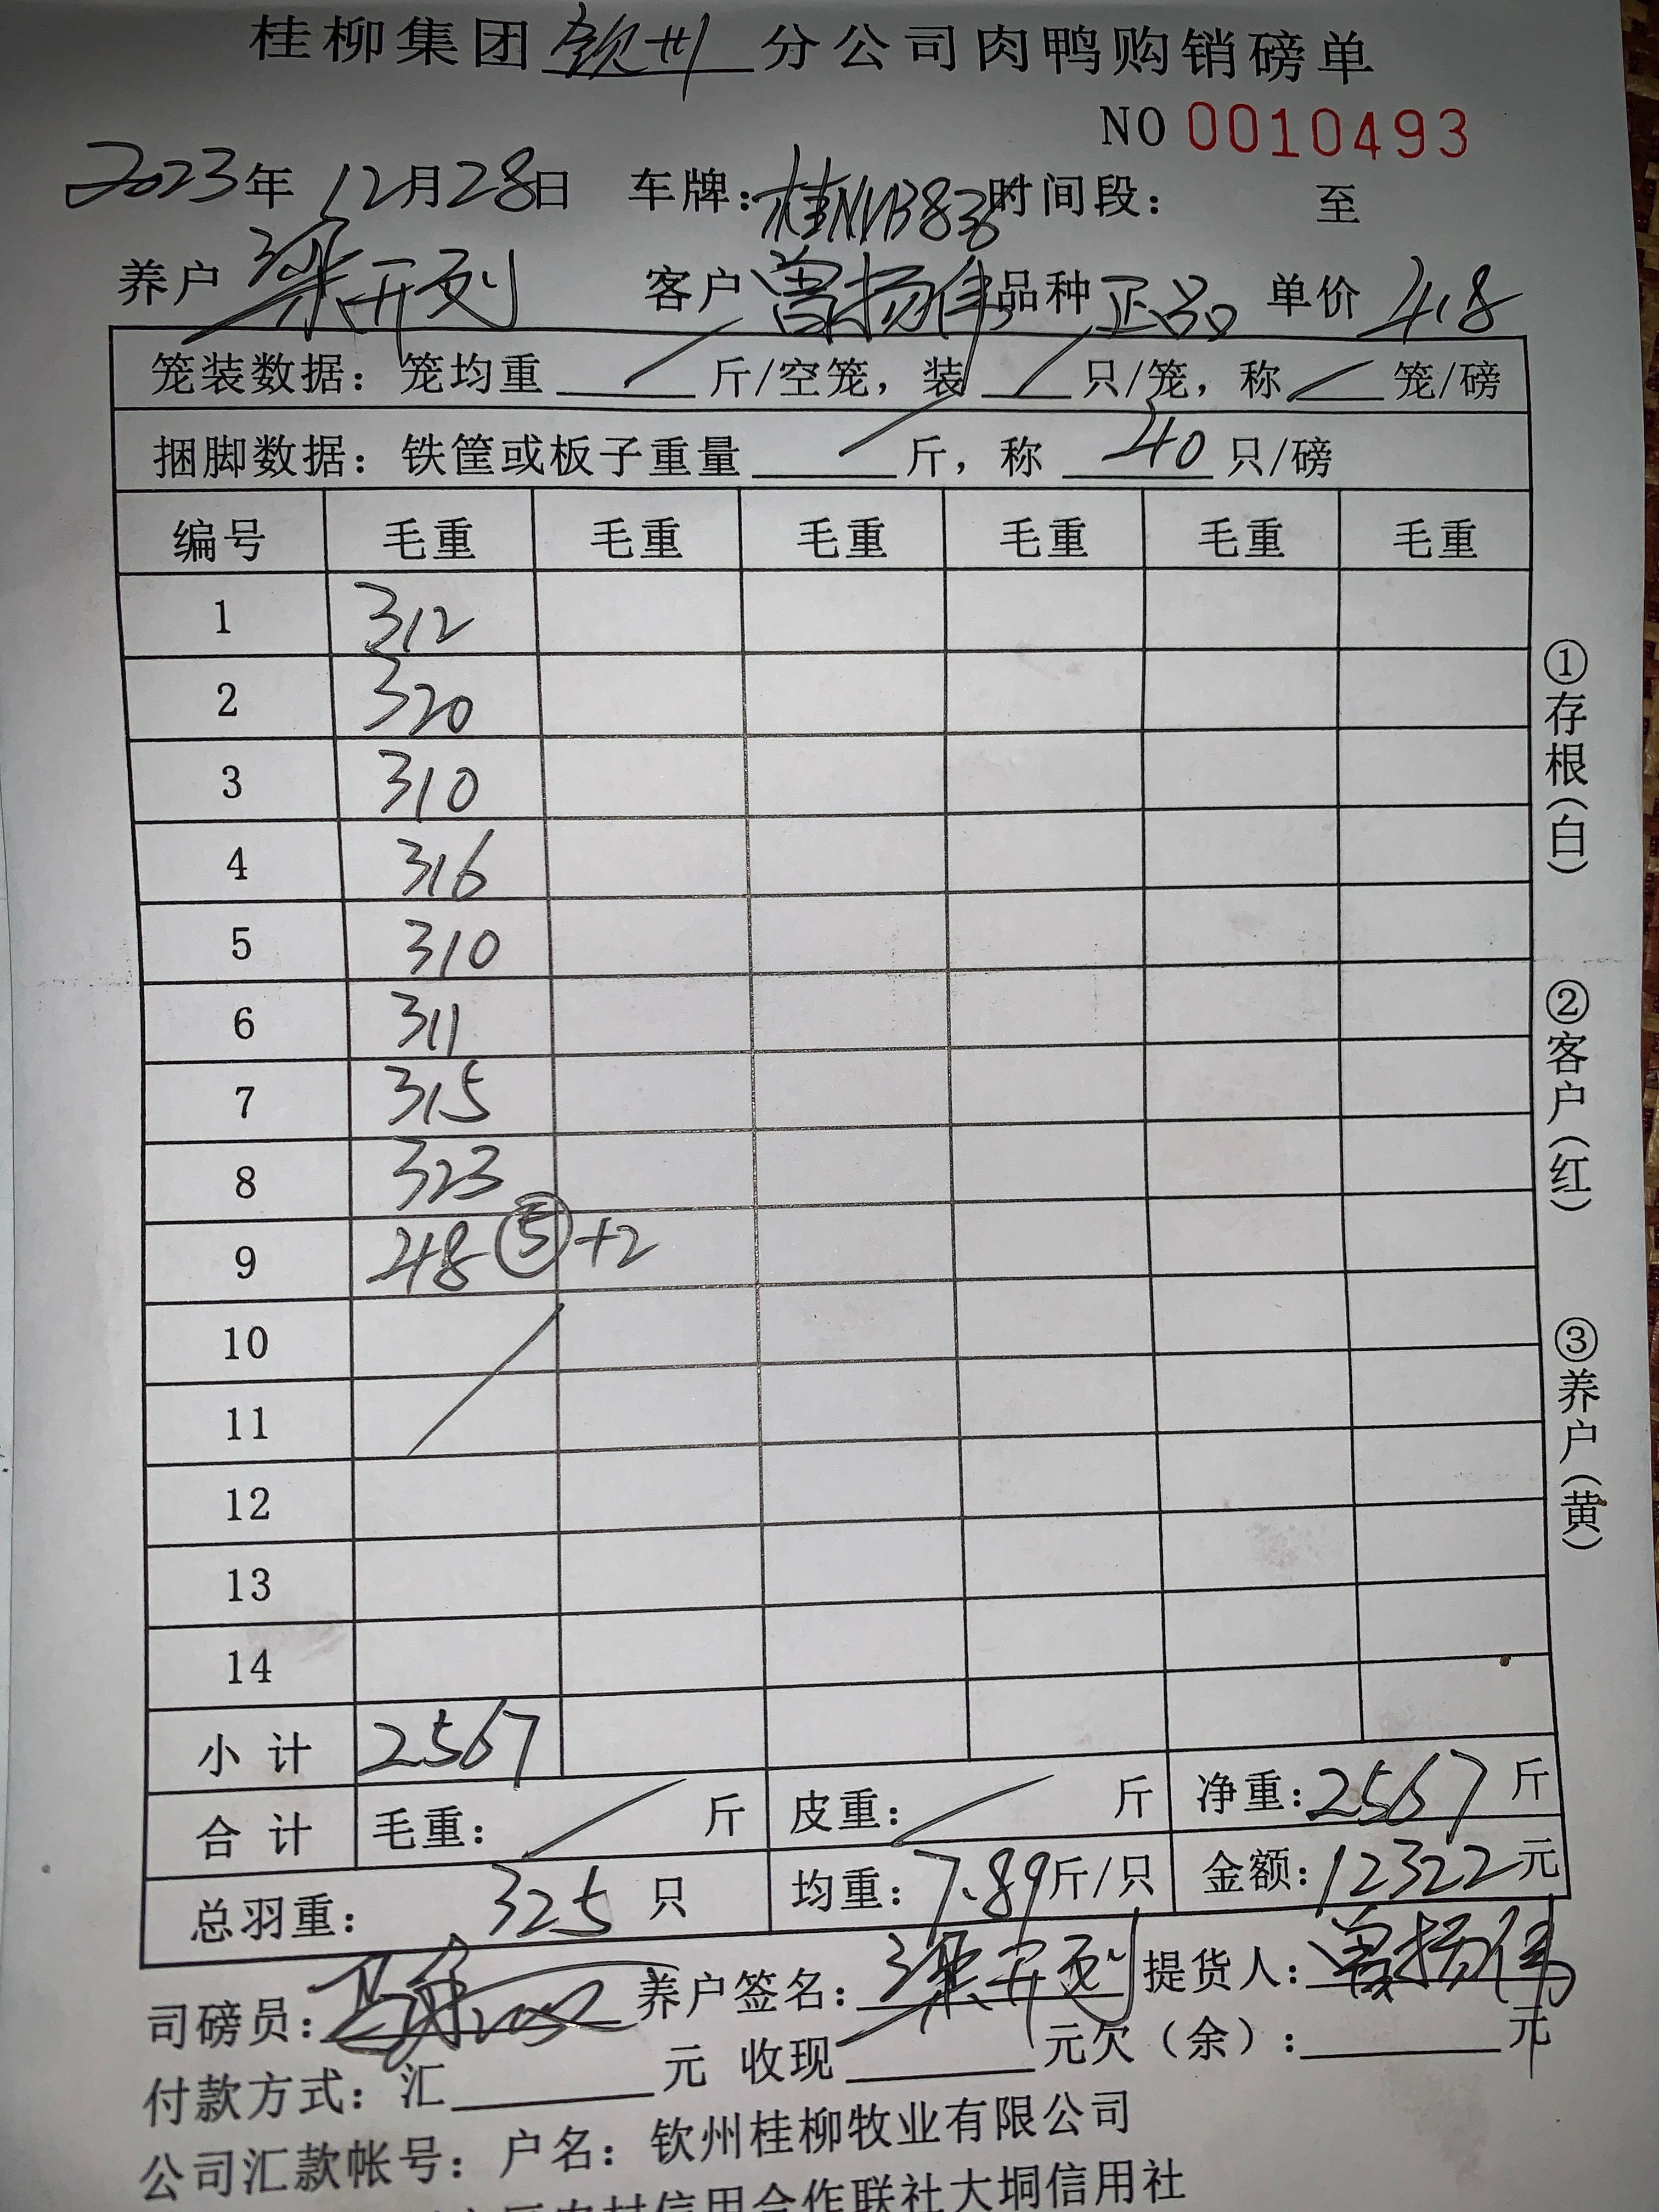 桂柳集团 钦州 分公司肉鸭购销磅单
NO 0010493
2023年 12月28日 车牌: 时间段: 至
养户 梁开列 客户 曾扬伟 品种 正品 单价 4.8
笼装数据: 笼均重 / 斤/空笼, 装 / 只/笼, 称 / 笼/磅
捆脚数据: 铁筐或板子重量 / 斤, 称 40 只/磅
编号 毛重 毛重 毛重 毛重 毛重 毛重
1 312
2 320
3 310
4 316
5 310
6 311
7 315
8 323
9 48 ⑤+2
10
11
12
13
14
小 计 2567
合 计 毛重: / 斤 皮重: / 斤 净重: 2567 斤
总羽重: 325 只 均重: 7.89 斤/只 金额: 12322 元
司磅员: 养户签名: 梁开列 提货人: 曾扬伟
付款方式: 汇 元 收现 元欠(余): 元
公司汇款帐号: 户名: 钦州桂柳牧业有限公司
农村信用合作联社大垌信用社
①存根(白)
②客户(红)
③养户(黄)